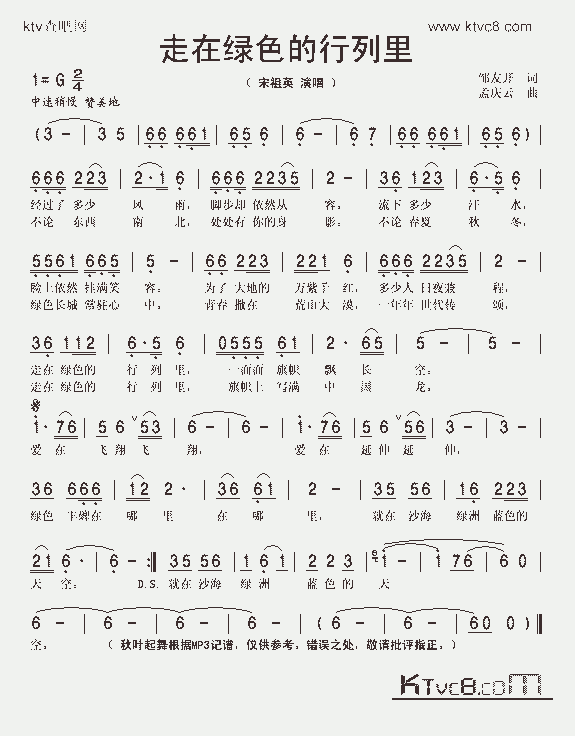 ktv 吉吧网 www.ktvc8.com
走在绿色的行列里
1=G 2/4 （ 宋祖英 演唱 ） 邹友开 词
中速稍慢 赞美地 孟庆云 曲
(3 - | 3 5 | 66 661 | 65 6 | 6 - | 6 7 | 66 661 | 65 6 ) |
666 223 | 2·1 6 | 666 2235 | 2 - | 36 123 | 6·5 6 |
经过了 多少 风 雨， 脚步却 依然从 容； 流下 多少 汗 水，
不论 东西 南 北， 处处有 你的身 影； 不论 春夏 秋 冬，
5561 665 | 5 - | 66 223 | 221 6 | 666 2235 | 2 - |
脸上依然 挂满笑 容； 为了 大地的 万紫千 红， 多少人 日夜兼 程，
绿色长城 常驻心 中； 青春 撒在 荒山大 漠， 一年年 世代传 颂，
36 112 | 6·5 6 | 0555 61 | 2 35 | 5 - | 5 - |
走在 绿色的 行 列 里， 一面面 旗帜 飘 长 空。
走在 绿色的 行 列 里， 旗帜上 写满 中 国 龙。
1·76 | 5 6 53 | 6 - | 6 - | 1·76 | 56 56 | 3 - | 3 - |
爱 在 飞 翔 飞 翔， 爱 在 延伸 延 伸，
36 666 | 12 2· | 36 61 | 2 - | 35 56 | 16 223 |
绿色 丰碑在 哪 里 在 哪 里， 就在 沙海 绿洲 蓝色的
21 6· | 6 - :‖ 35 56 | 6 1 | 2 2 3 | 1 - | 1 76 | 6 0 |
天 空； D.S. 就在 沙海 绿 洲 蓝 色 的 天
6 - | 6 - | 6 - | 6 - | (6 - | 6 - | 6 - | 60 0 )‖
空。 （ 秋叶起舞根据MP3记谱，仅供参考。错误之处，敬请批评指正。）
KTvc8.com